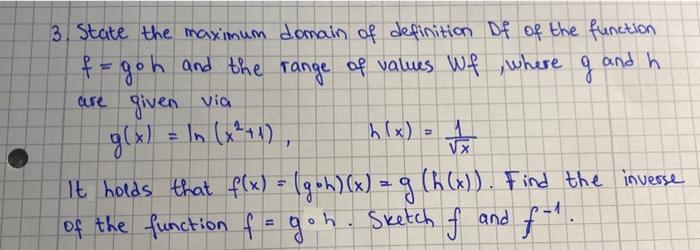 3. State the maximum domain of definition Df of the function
f = g∘h and the range of values Wf , where g and h
are given via
g(x) = ln (x²+1) , h(x) = 1/√x
It holds that f(x) = (g∘h)(x) = g (h(x)). Find the inverse
of the function f = g∘h. Sketch f and f⁻¹.